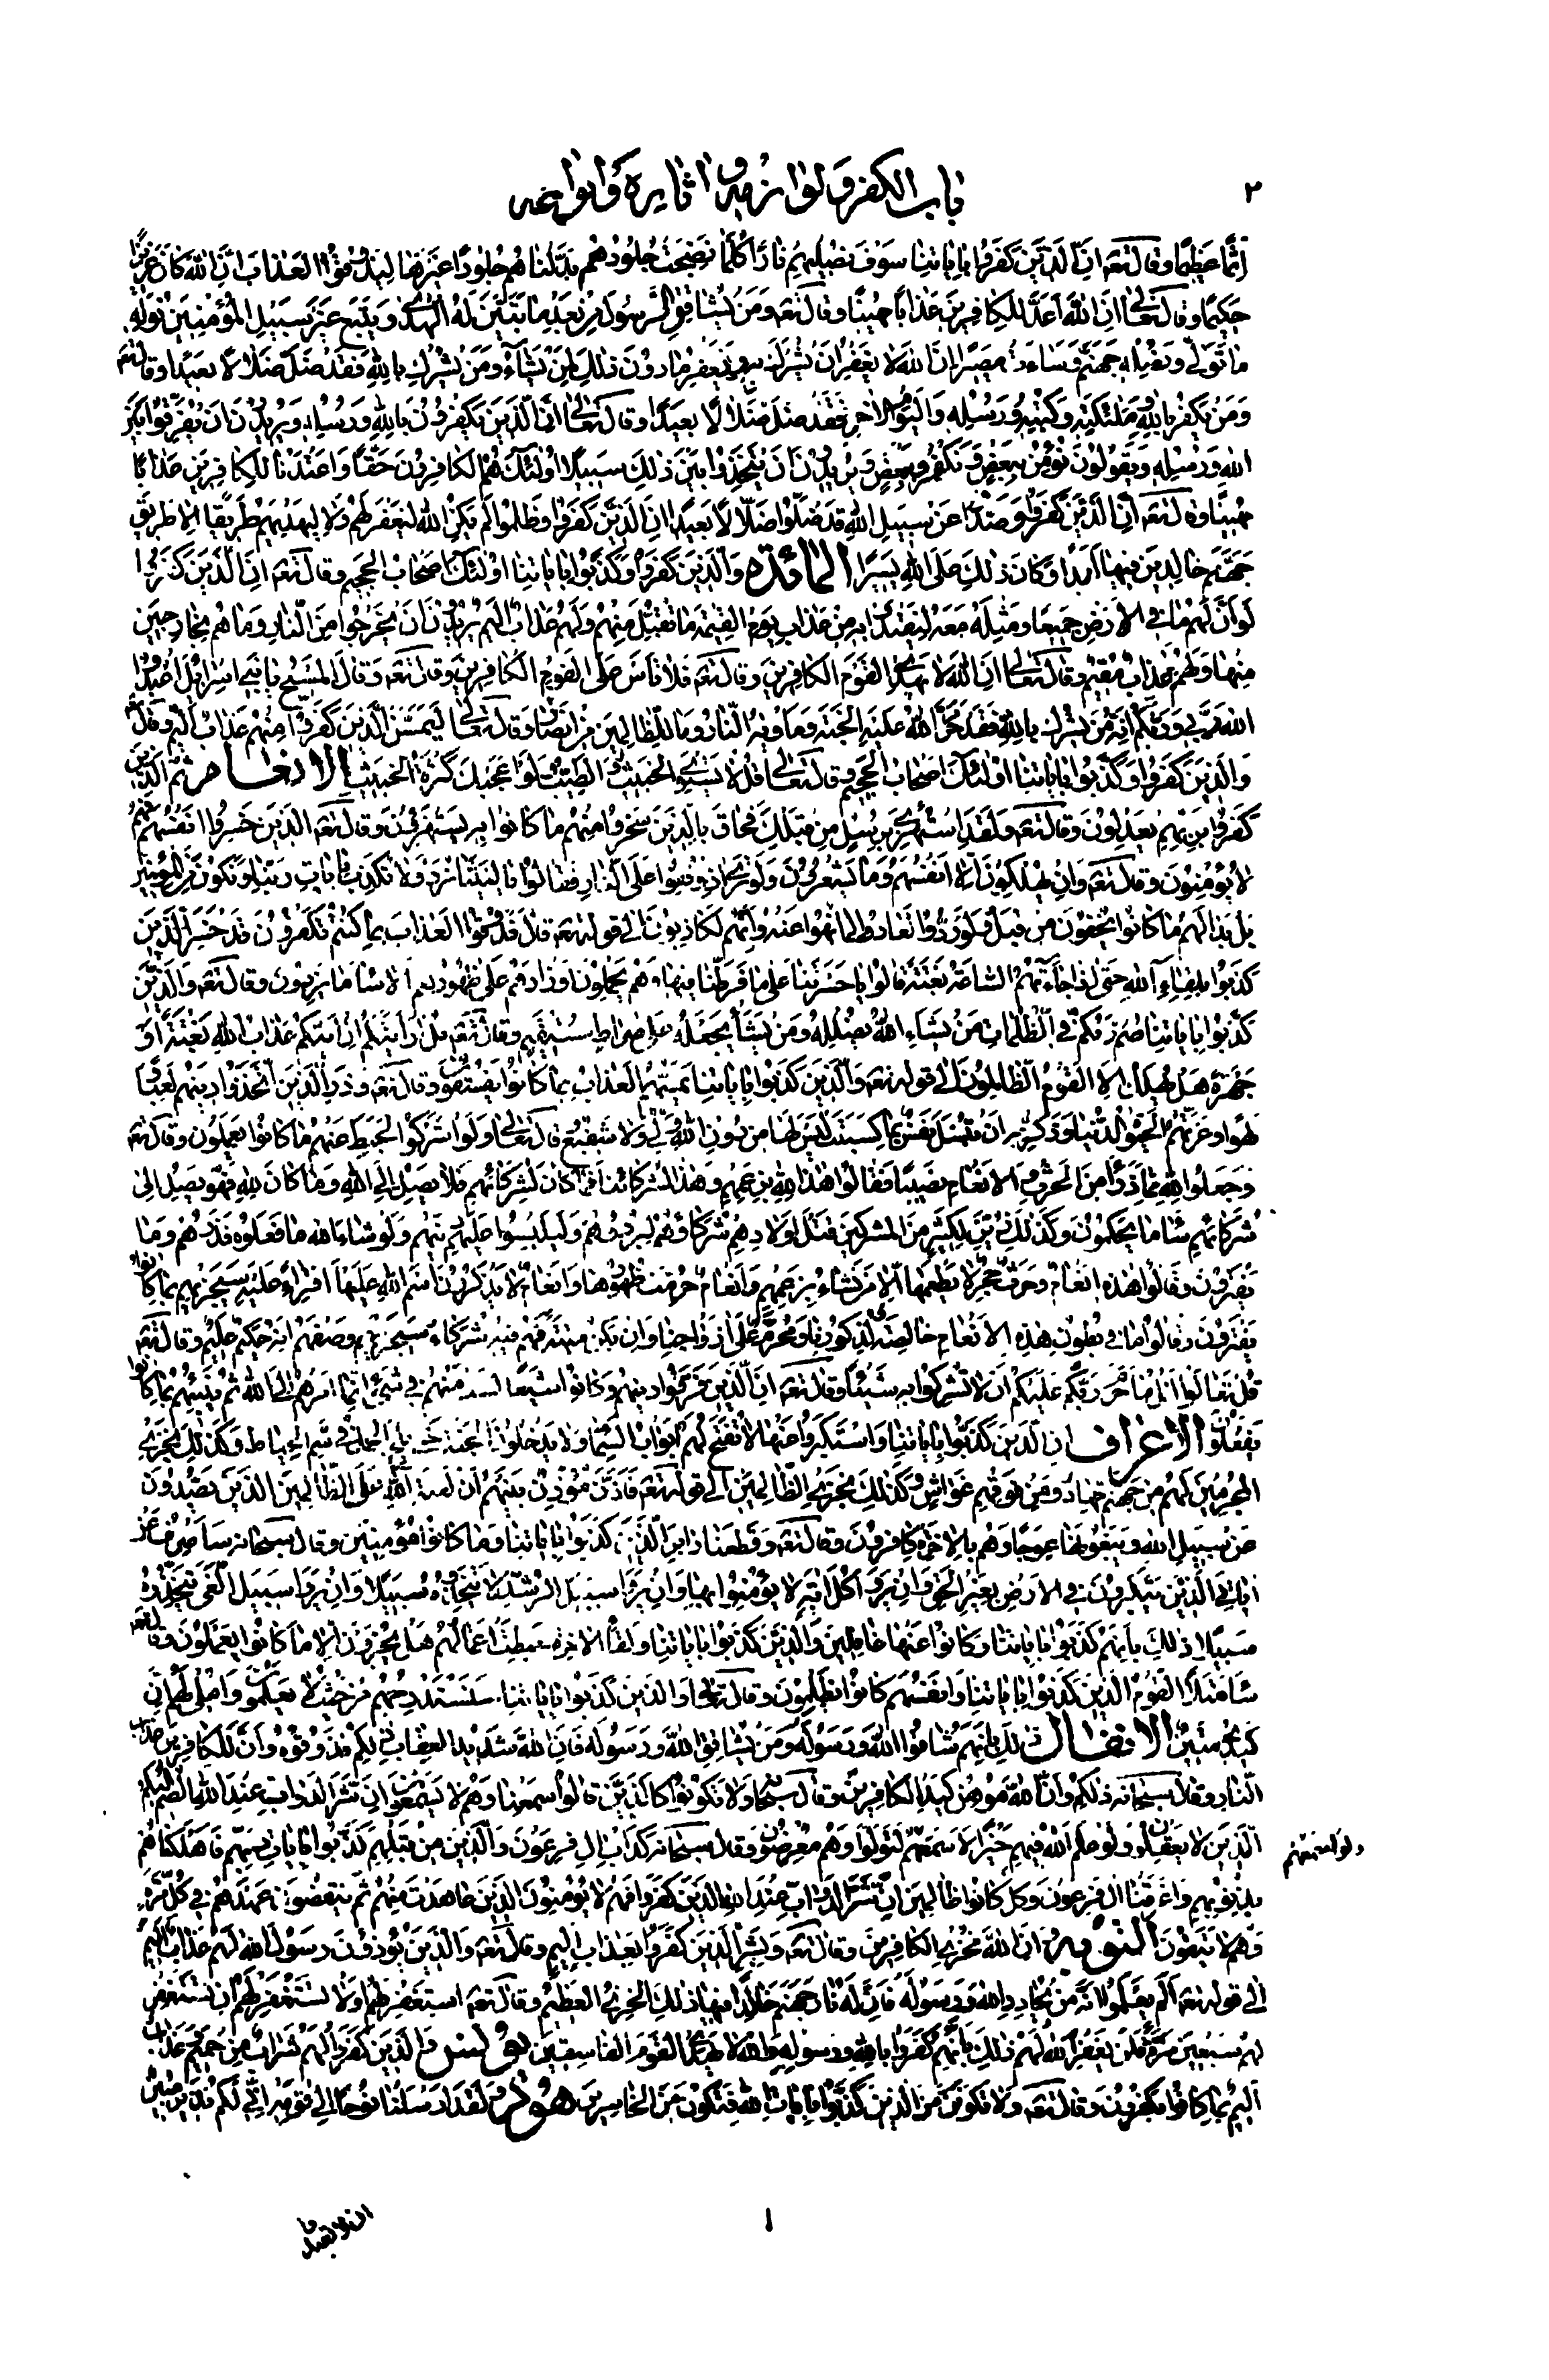 ٢
باب الكفر ولوازمه واثاره وانواعه
اثما عظيما وقال تعه ان الذين كفروا باياتنا سوف نصليهم نارا كلما نضجت جلودهم بدلناهم جلودا غيرها ليذوقوا العذاب ان الله كان عزيزا
حكيما وقال تعالى ان الله اعد للكافرين عذابا مهينا وقال تعه ومن يشاقق الرسول من بعد ما تبين له الهدى ويتبع غير سبيل المؤمنين نوله
ما تولى ونصله جهنم وساءت مصيرا ان الله لا يغفر ان يشرك به ويغفر ما دون ذلك لمن يشاء ومن يشرك بالله فقد ضل ضلالا بعيدا وقال تعه
ومن يكفر بالله وملئكته وكتبه ورسله واليوم الاخر فقد ضل ضلالا بعيدا وقال تعالى ان الذين يكفرون بالله ورسله ويريدون ان يفرقوا بين
الله ورسله ويقولون نؤمن ببعض ونكفر ببعض ويريدون ان يتخذوا بين ذلك سبيلا اولئك هم الكافرون حقا واعتدنا للكافرين عذابا
مهينا وقال تعه ان الذين كفروا وصدوا عن سبيل الله قد ضلوا ضلالا بعيدا ان الذين كفروا وظلموا لم يكن الله ليغفر لهم ولا ليهديهم طريقا الا طريق
جهنم خالدين فيها ابدا وكان ذلك على الله يسيرا المائده والذين كفروا وكذبوا باياتنا اولئك اصحاب الجحيم وقال تعه ان الذين كفروا
لو ان لهم ما في الارض جميعا ومثله معه ليفتدوا به من عذاب يوم القيمة ما تقبل منهم ولهم عذاب اليم يريدون ان يخرجوا من النار وما هم بخارجين
منها ولهم عذاب مقيم وقال تعالى ان الله لا يهدي القوم الكافرين وقال تعه فلا تاس على القوم الكافرين وقال تعه وقال المسيح يا بني اسرائيل اعبدوا
الله ربي وربكم انه من يشرك بالله فقد حرم الله عليه الجنة وماويه النار وما للظالمين من انصار وقال تعالى ليمسن الذين كفروا منهم عذاب اليم وقال تعه
والذين كفروا وكذبوا باياتنا اولئك اصحاب الجحيم وقال تعالى قل لا يستوي الخبيث والطيب ولو اعجبك كثرة الخبيث الانعام ثم الذين
كفروا بربهم يعدلون وقال تعه ولقد استهزئ برسل من قبلك فحاق بالذين سخروا منهم ما كانوا به يستهزؤن وقال تعه الذين خسروا انفسهم فهم
لا يؤمنون وقال تعه وان يهلكون الا انفسهم وما يشعرون ولو ترى اذ وقفوا على النار فقالوا يا ليتنا نرد ولا نكذب بايات ربنا ونكون من المؤمنين
بل بدا لهم ما كانوا يخفون من قبل ولو ردوا لعادوا لما نهوا عنه وانهم لكاذبون الى قوله تعه قال فذوقوا العذاب بما كنتم تكفرون قد خسر الذين
كذبوا بلقاء الله حتى اذا جاءتهم الساعة بغتة قالوا يا حسرتنا على ما فرطنا فيها وهم يحملون اوزارهم على ظهورهم الا ساء ما يزرون وقال تعه والذين
كذبوا باياتنا صم وبكم في الظلمات من يشاء الله يضلله ومن يشأ يجعله على صراط مستقيم وقال تعه قل ارايتكم ان اتيكم عذاب الله بغتة او
جهرة هل يهلك الا القوم الظالمون الى قوله تعه والذين كذبوا باياتنا يمسهم العذاب بما كانوا يفسقون وقال تعه وذر الذين اتخذوا دينهم لعبا و
لهوا وغرتهم الحيوة الدنيا وذكر به ان تبسل نفس بما كسبت ليس لها من دون الله ولي ولا شفيع وقال تعالى ولو اشركوا لحبط عنهم ما كانوا يعملون وقال تعه
وجعلوا لله مما ذرأ من الحرث والانعام نصيبا فقالوا هذا لله بزعمهم وهذا لشركائنا فما كان لشركائهم فلا يصل الى الله وما كان لله فهو يصل الى
شركائهم ساء ما يحكمون وكذلك زين لكثير من المشركين قتل اولادهم شركاؤهم ليردوهم وليلبسوا عليهم دينهم ولو شاء الله ما فعلوه فذرهم وما
يفترون وقالوا هذه انعام وحرث حجر لا يطعمها الا من نشاء بزعمهم وانعام حرمت ظهورها وانعام لا يذكرون اسم الله عليها افتراء عليه سيجزيهم بما كانوا
يفترون وقالوا ما في بطون هذه الانعام خالصة لذكورنا ومحرم على ازواجنا وان يكن ميتة فهم فيه شركاء سيجزيهم وصفهم انه حكيم عليم وقال تعه
قل تعالوا اتل ما حرم ربكم عليكم ان لا تشركوا به شيئا وقال تعه ان الذين فرقوا دينهم وكانوا شيعا لست منهم في شئ انما امرهم الى الله ثم ينبئهم بما كانوا
يفعلون الاعراف ان الذين كذبوا باياتنا واستكبروا عنها لا تفتح لهم ابواب السماء ولا يدخلون الجنة حتى يلج الجمل في سم الخياط وكذلك نجزي
المجرمين لهم من جهنم مهاد ومن فوقهم غواش وكذلك نجزي الظالمين الى قوله تعه فاذن مؤذن بينهم ان لعنة الله على الظالمين الذين يصدون
عن سبيل الله ويبغونها عوجا وهم بالاخرة كافرون وقال تعه وقطعنا دابر الذين كذبوا باياتنا وما كانوا مؤمنين وقال سبحانه ساصرف عن
اياتي الذين يتكبرون في الارض بغير الحق وان يروا كل اية لا يؤمنوا بها وان يروا سبيل الرشد لا يتخذوه سبيلا وان يروا سبيل الغي يتخذوه
سبيلا ذلك بانهم كذبوا باياتنا وكانوا عنها غافلين والذين كذبوا باياتنا ولقاء الاخرة حبطت اعمالهم هل يجزون الا ما كانوا يعملون وقال تعه
ساء مثلا القوم الذين كذبوا باياتنا وانفسهم كانوا يظلمون وقال تعالى والذين كذبوا باياتنا سنستدرجهم من حيث لا يعلمون واملي لهم ان
كيدي متين الانفال ذلك بانهم شاقوا الله ورسوله ومن يشاقق الله ورسوله فان الله شديد العقاب ذلكم فذوقوه وان للكافرين عذاب
النار وقال سبحانه ذلكم وان الله موهن كيد الكافرين وقال سبحانه ولا تكونوا كالذين قالوا سمعنا وهم لا يسمعون ان شر الدواب عند الله الصم البكم
الذين لا يعقلون ولو علم الله فيهم خيرا لاسمعهم لتولوا وهم معرضون وقال سبحانه كدأب ال فرعون والذين من قبلهم كذبوا بايات ربهم فاهلكناهم
ولو اسمعهم
بذنوبهم واغرقنا ال فرعون وكل كانوا ظالمين ان شر الدواب عند الله الذين كفروا فهم لا يؤمنون الذين عاهدت منهم ثم ينقضون عهدهم في كل مرة
وهم لا يتقون التوبه ان الله مخزي الكافرين وقال تعه وبشر الذين كفروا بعذاب اليم وقال تعه والذين يؤذون رسول الله لهم عذاب اليم
الى قوله تعه الم يعلموا انه من يحادد الله ورسوله فان له نار جهنم خالدا فيها ذلك الخزي العظيم وقال تعه استغفر لهم او لا تستغفر لهم ان تستغفر
لهم سبعين مرة فلن يغفر الله لهم ذلك بانهم كفروا بالله ورسوله والله لا يهدي القوم الفاسقين يونس والذين كفروا لهم شراب من حميم وعذاب
اليم بما كانوا يكفرون وقال تعه ولا تكونن من الذين كذبوا بايات الله فتكون من الخاسرين هود ولقد ارسلنا نوحا الى قومه اني لكم نذير مبين
١